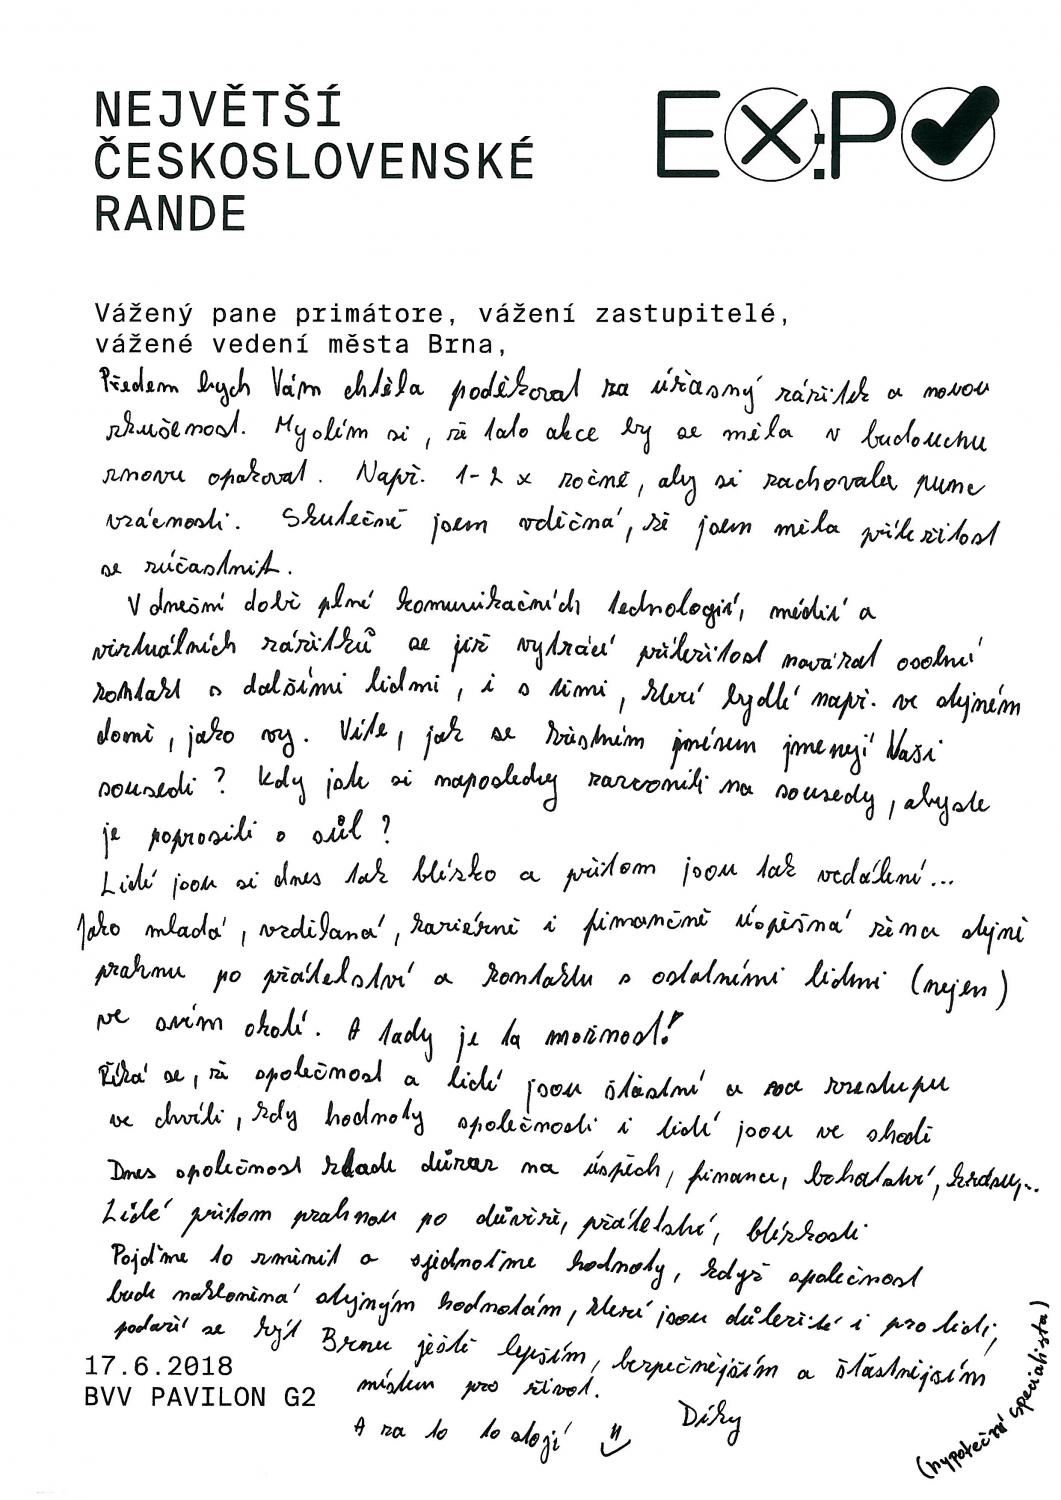 NEJVĚTŠÍ
ČESKOSLOVENSKÉ
RANDE
EX:PO
Vážený pane primátore, vážení zastupitelé,
vážené vedení města Brna,
Předem bych Vám chtěla poděkovat za úžasný zážitek a novou
zkušenost. Myslím si, že tato akce by se měla v budoucnu
znovu opakovat. Např. 1-2 x ročně, aby si zachovala punc
vzácnosti. Skutečně jsem vděčná, že jsem měla příležitost
se zúčastnit.
V dnešní době plné komunikačních technologií, médií a
virtuálních zážitků se již vytrácí příležitost navázat osobní
kontakt s dalšími lidmi, i s těmi, kteří bydlí např. ve stejném
domě, jako vy. Víte, jak se křestním jménem jmenejí Vaši
sousedi? Kdy jste si naposledy zazvonili na sousedy, abyste
je poprosili o sůl?
Lidé jsou si dnes tak blízko a přitom jsou tak vzdálení...
Jako mladá, vzdělaná, kariérně i finančně úspěšná žena stejně
prahnu po přátelství a kontaktu s ostatními lidmi (nejen)
ve svém okolí. A tady je ta možnost!
Říká se, že společnost a lidé jsou šťastní a na vzestupu
ve chvíli, kdy hodnoty společnosti i lidí jsou ve shodě
Dnes společnost klade důraz na úspěch, finance, bohatství, krásu,...
Lidé přitom prahnou po důvěře, přátelství, blízkosti
Pojďme to změnit a sjednoťme hodnoty, když společnost
bude nakloněna stejným hodnotám, které jsou důležité i pro lidi,
podaří se být Brnu ještě lepším, bezpečnějším a šťastnějším
místem pro život.
A za to to stojí
Díky
(hypoteční specialista)
17.6.2018
BVV PAVILON G2